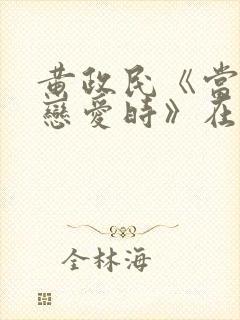 黄政民《當
戀愛時》在
全林海